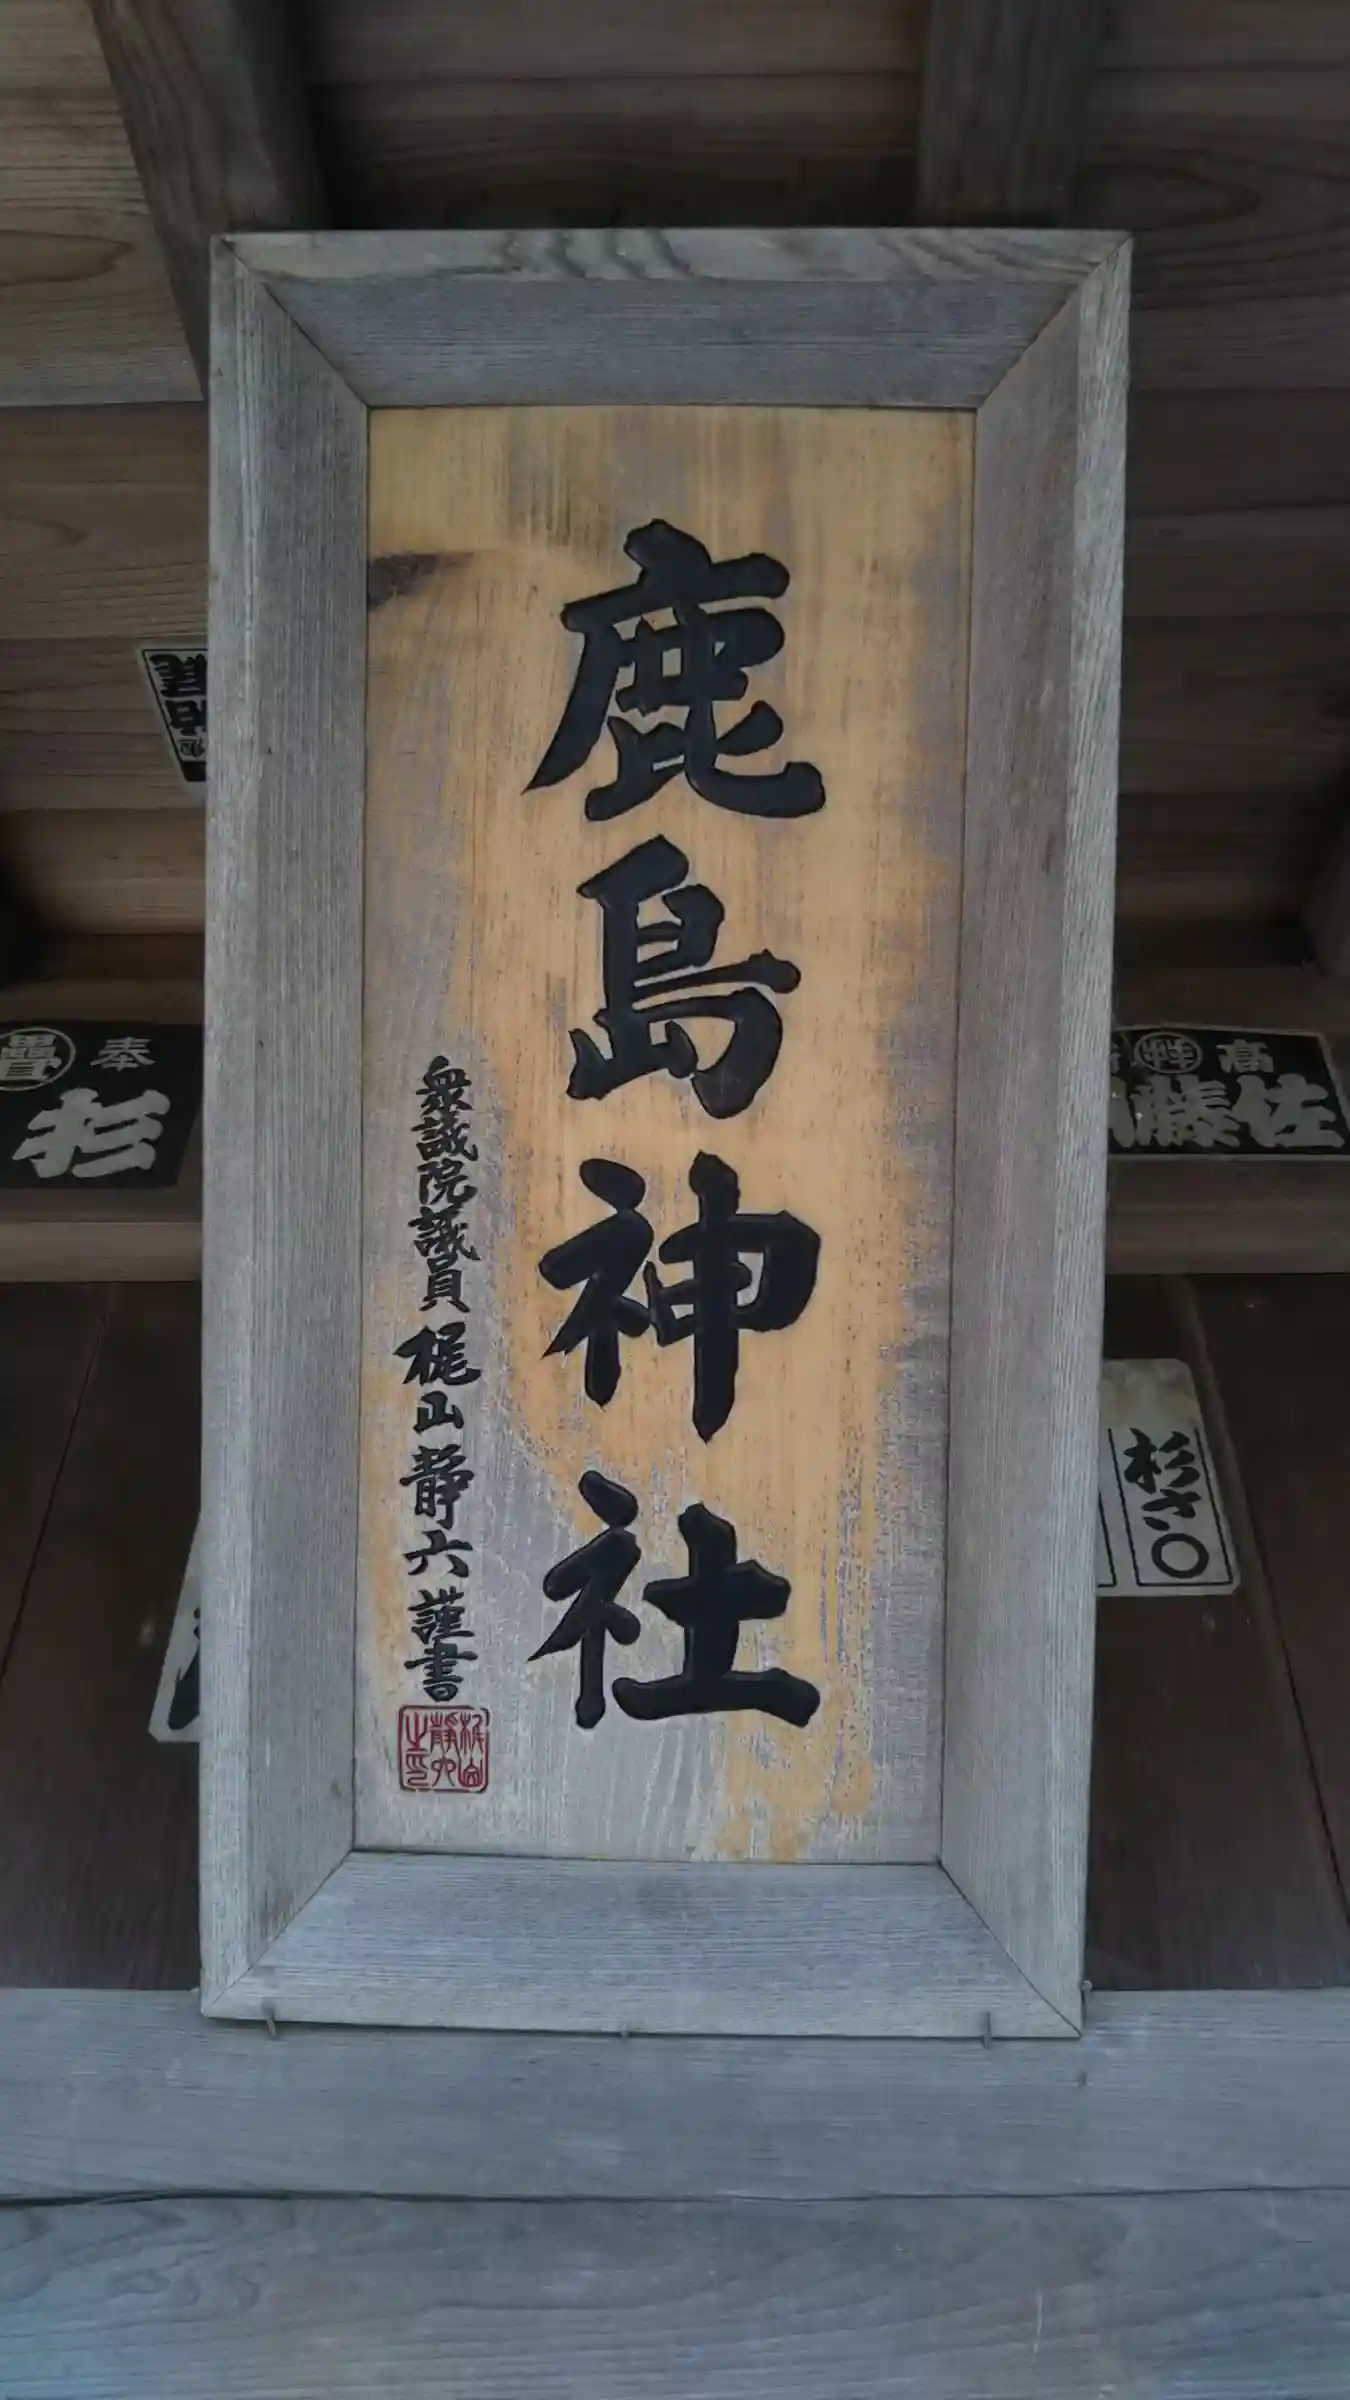 鹿島神社
衆議院議員 梶山静六謹書
梶山
静六
之印
奉
杉
高
佐藤
杉さ〇